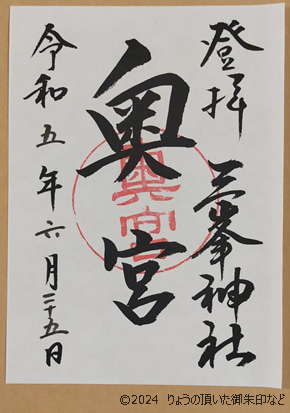 登拝 三峯神社
奥宮
奥宮
令和五年六月二十五日
©2024 りょうの頂いた御朱印など